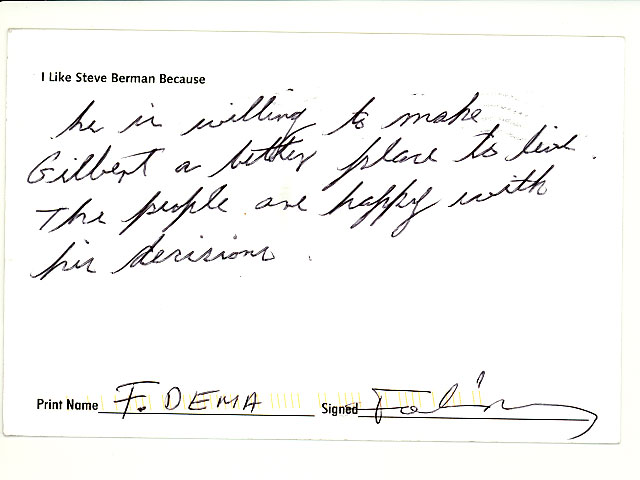 I Like Steve Berman Because
he is willing to make
Gilbert a better place to live.
The people are happy with
his decisions.
Print Name F. DEMA Signed